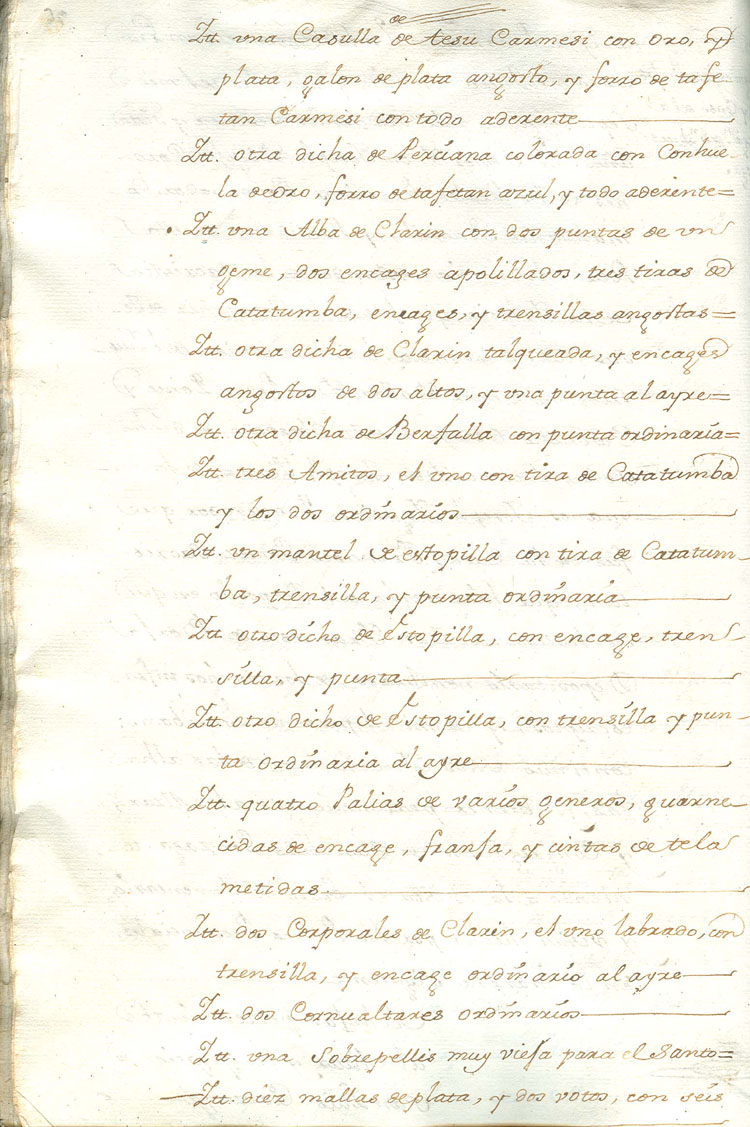 de
Itt. vna Casulla de tesu Carmesi con oro, y
plata, galon de plata angosto, y forro de tafe
tan Carmesi con todo aderente
Itt. otra dicha de Perciana colorada con Conhue
la de oro, forro de tafetan azul, y todo aderente=
Itt. vna Alba de Clarin con dos puntas de vn
geme, dos encages apolillados, tres tiras de
Catatumba, encages, y trensillas angostas=
Itt. otra dicha de Clarin talqueada, y encages
angostos de dos altos, y vna punta al ayre=
Itt. otra dicha de Berfalla con punta ordinaria=
Itt. tres Amitos, el vno con tira de Catatumba
y los dos ordinarios
Itt. vn mantel de estopilla con tira de Catatum-
ba, trensilla, y punta ordinaria
Itt. otro dicho de Estopilla, con encage, tren
silla, y punta
Itt. otro dicho de Estopilla, con trensilla y pun-
ta ordinaria al ayre
Itt. quatro Palias de varios generos, guarne
cidas de encage, fransa, y cintas de tela
metidas.
Itt. dos Corporales de Clarin, el vno labrado, con
trensilla, y encage ordinario al ayre
Itt. dos Cornualtares ordinarios
Itt. vna Sobrepellis muy viesa para el Santo=
Itt. diez mallas de plata, y dos votos, con seis